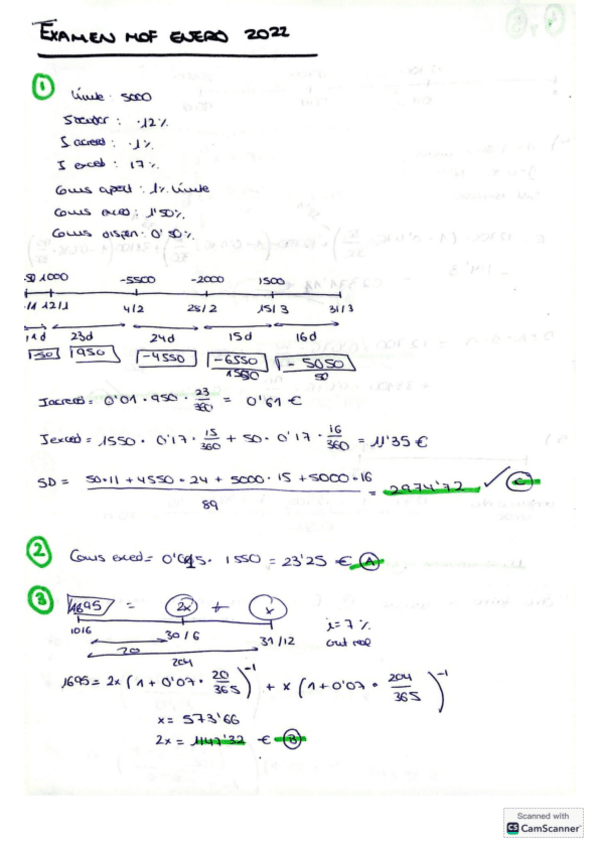 EXAMEN MOF ENERO 2022
1
Límite: 5000
12%
1%
I exced: 17%
1% límite
1'50%
0'50%
-50 1000 -5500 -2000 1500
1/1 12/1 4/2 25/2 15/3 31/3
11d 23d 24d 15d 16d
-50 950 -4550 -6550 -5050
1550 50
Iacreed = 0'01 · 950 · 23/360 = 0'61 €
Iexced = 1550 · 0'17 · 15/360 + 50 · 0'17 · 16/360 = 11'35 €
SD = 50·11 + 4550·24 + 5000·15 + 5000·16 / 89 = 2974'72 ✓ C
2 Comis exced = 0'015 · 1550 = 23'25 € A
3 1695 = 2x + x
10/6 30/6 31/12
i = 7%
20
204
1695 = 2x (1 + 0'07 · 20/365)^-1 + x (1 + 0'07 · 204/365)^-1
x = 573'66
2x = 1147'32 € B
Scanned with
CS CamScanner